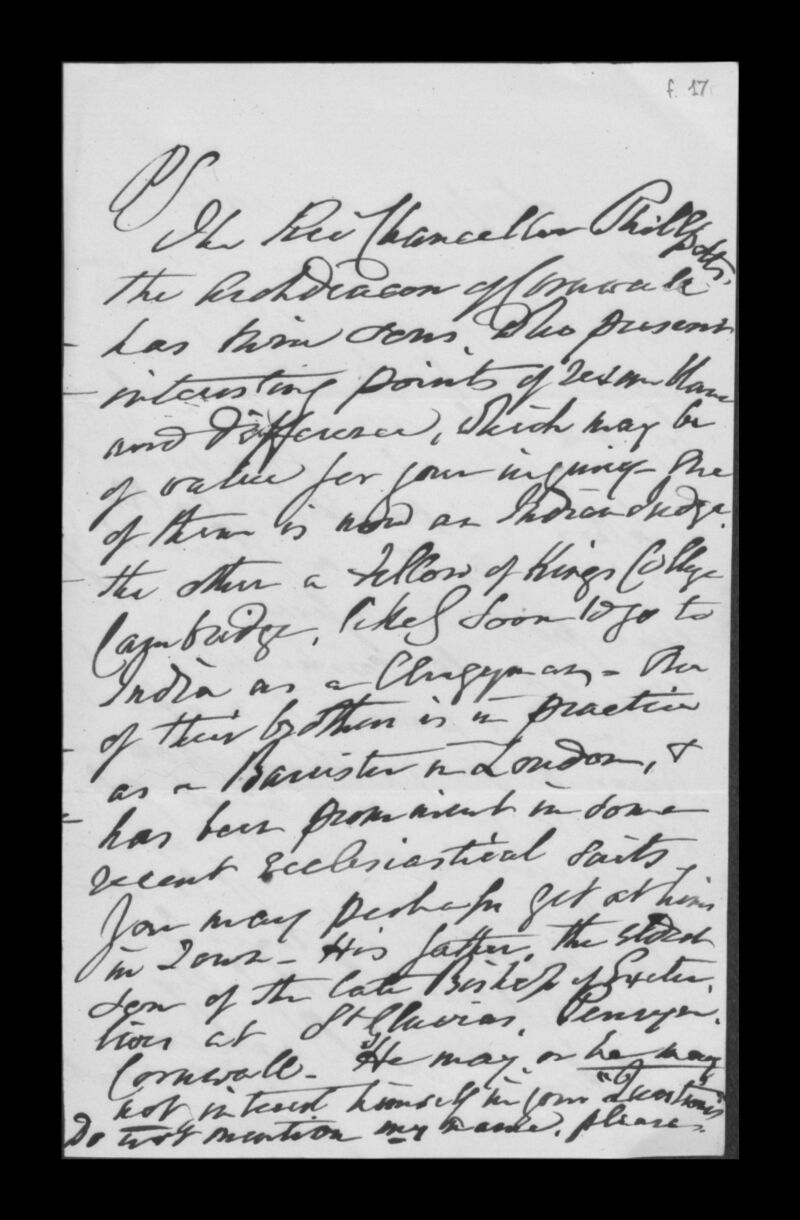 f. 17
PS
The Rev Chancellor Phillpotts,
the Archdeacon of Cornwall
has twin sons, who present
interesting points of resemblance
and difference, which may be
of value for your inquiry - One
of them is now an Indian Judge.
the other a Fellow of Kings College
Cambridge, likely soon to go to
India as a Clergyman - One
of their brothers is in practice
as a Barrister in London, &
has been prominent in some
recent Ecclesiastical suits
You may perhaps get at him
in Town - His father, the eldest
son of the late Bishop of Exeter,
lives at St Gluvias, Penryn.
Cornwall - He may, or he may
not interest himself in your "Questions"
Do not mention my name, please.